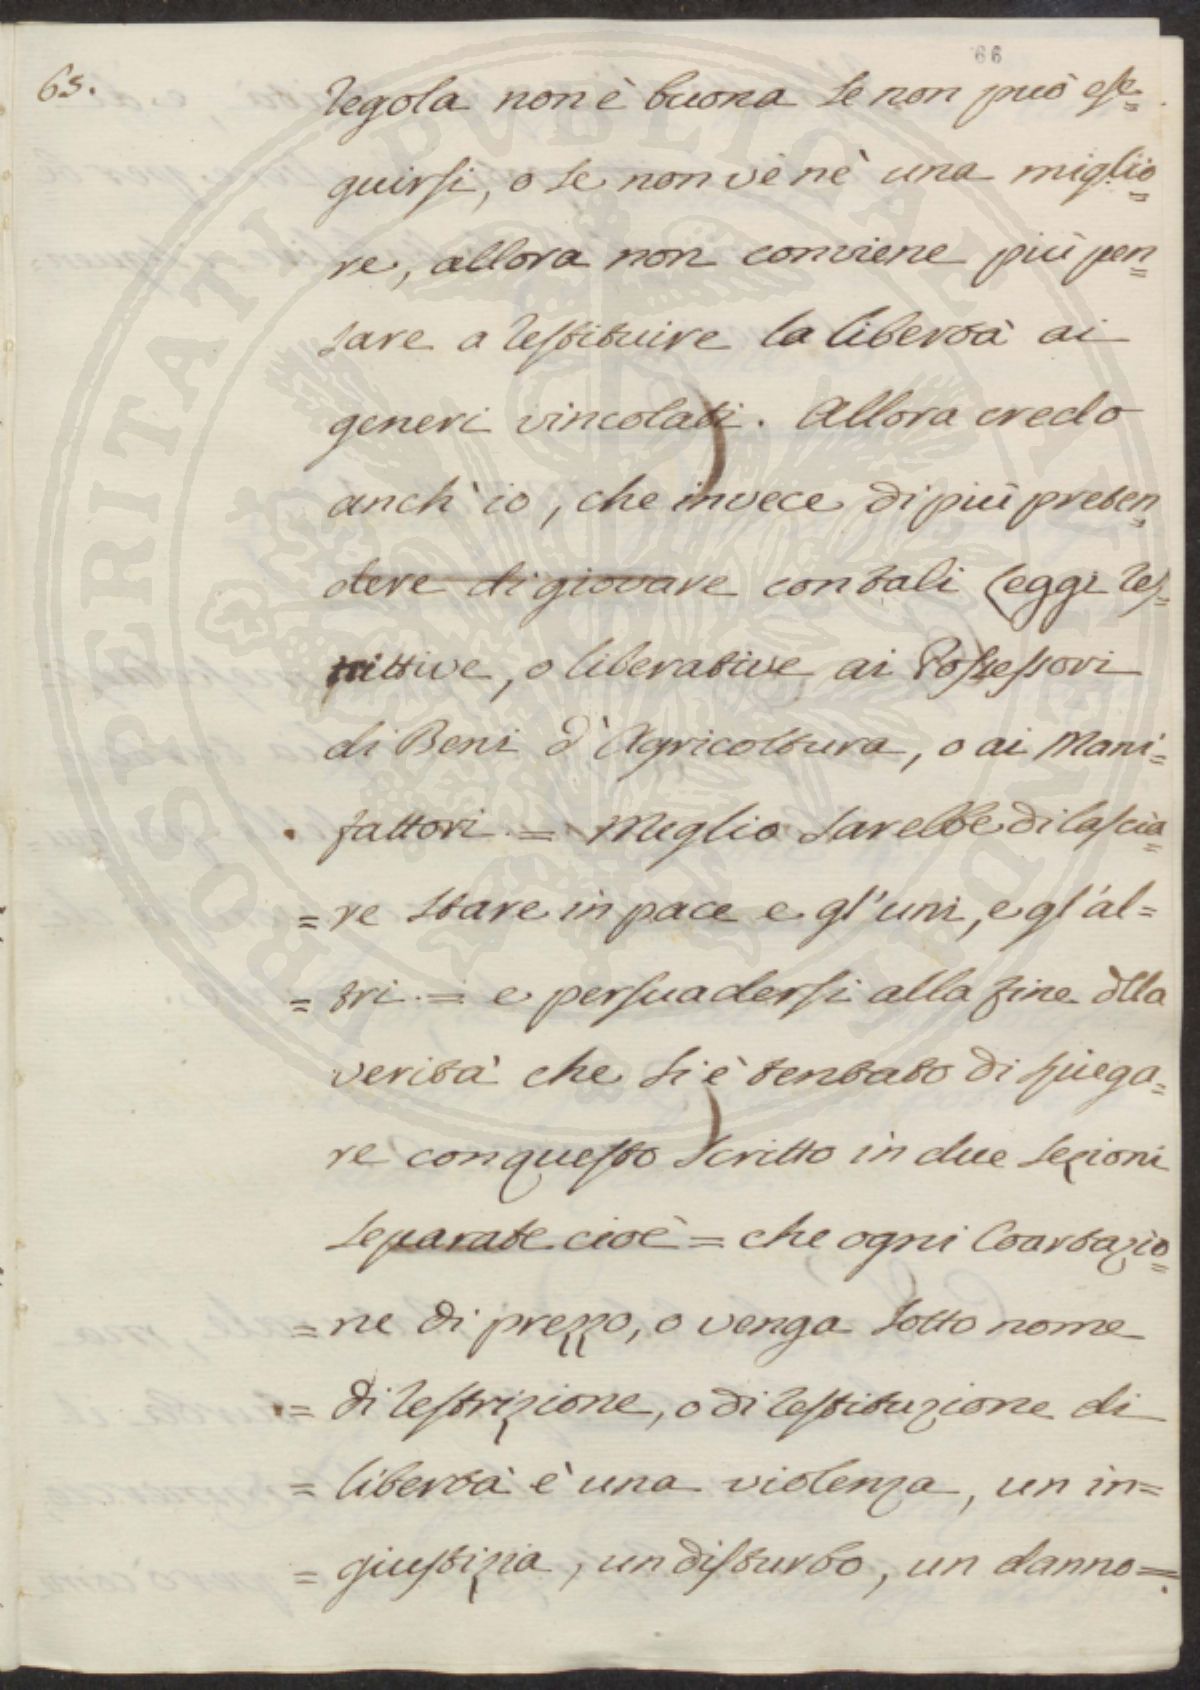 66
65.
regola non è buona se non può ese=
guirsi, o se non vè nè una miglio=
re, allora non conviene più pen=
sare a restituire la libertà ai
generi vincolati. Allora credo
anch' io, che invece di più preten=
dere di giovare con tali Leggi res=
trittive, o liberative ai Possessori
di Beni d'Agricoltura, o ai Mani=
fattori = Meglio sarebbe di lascia=
= re stare in pace e gl'uni, e gl'al=
= tri = e persuadersi alla fine della
verità che si è tentato di spiega=
re con questo Scritto in due sezioni
separate cioè = che ogni Coartazio=
= ne di prezzo, o venga sotto nome
= di restrizione, o di restituzione di
= libertà è una violenza, un in=
= giustizia, un disturbo, un danno =.
PROSPERITATI PUBLICAE AUGENDAE